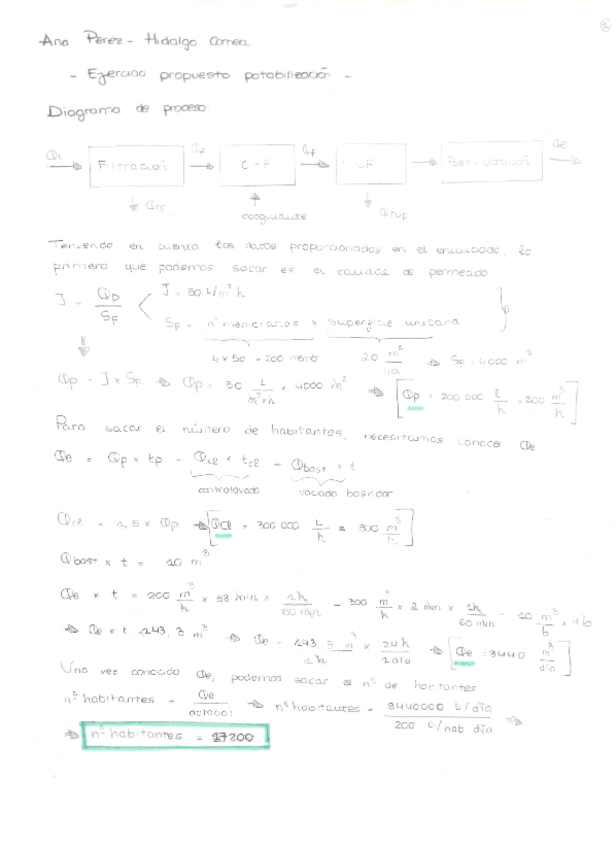 Ana Pérez - Hidalgo Correa.
- Ejercicio propuesto potabilización -
Diagrama de proceso.
Qf Qf Qe
Filtración C-F UF
coagulante
Teniendo en cuenta los datos proporcionados en el enunciado, lo
primero que podemos sacar es el caudal de permeado
J = Qp / SF
J = 50 L/m² h
SF = nº membranas x superficie unitaria
4 x 50 = 200 memb 20 m²/ua ⇒ SF = 4000 m²
Qp = J x SF ⇒ Qp = 50 L/m²xh x 4000 m² ⇒ [Qp = 200 000 L/h = 200 m³/h]
Para sacar el número de habitantes, necesitamos conocer Qe
Qe = Qp x tp - Qcl x tcl - Qbast x t
contralavado vaciado bastidor
Qcl = 1,5 x Qp ⇒ [Qcl = 300 000 L/h = 300 m³/h]
Qbast x t = 10 m³
Qe x t = 200 m³/h x 58 min x 1h/60 min - 300 m³/h x 2 min x 1h/60 min - 10 m³/b x 4b
⇒ Qe x t = 143,3 m³ ⇒ Qe = 143,3 m³/1h x 24h/1día ⇒ [Qe = 3440 m³/día]
Una vez conocido Qe, podemos sacar el nº de habitantes
nº habitantes = Qe/dotación ⇒ nº habitantes = 3440000 L/día / 200 L/hab día ⇒
⇒ nº habitantes = 17200